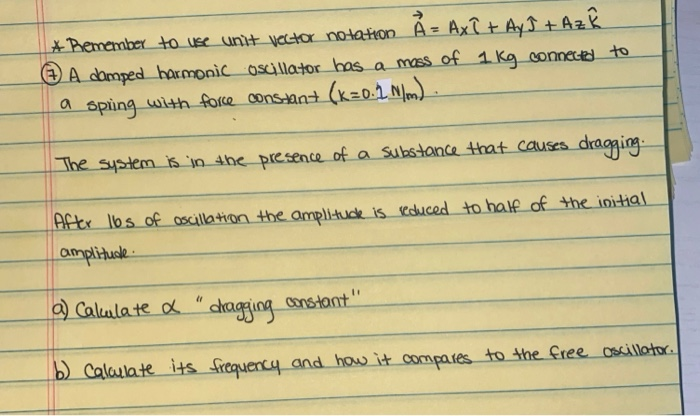 * Remember to use unit vector notation A⃗ = Axî + Ayĵ + Azk̂
⑦ A damped harmonic oscillator has a mass of 1 Kg connected to
a spiing with force constant (K=0.1 N/m).
The system is in the presence of a substance that causes dragging.
After 16s of oscillation the amplitude is reduced to half of the initial
amplitude.
a) Calculate α "dragging constant"
b) Calculate its frequency and how it compares to the free oscillator.